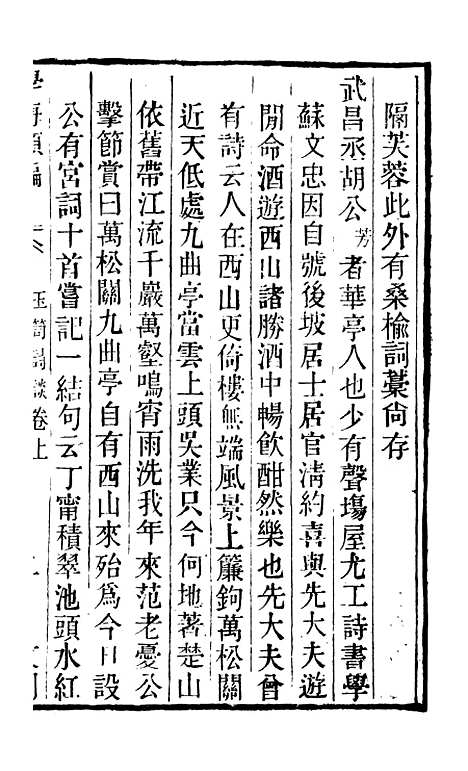 隔芙蓉此外有桑榆詞藁尙存
武昌丞胡公芳者華亭人也少有聲塲屋尤工詩書學
蘇文忠因自號後坡居士居官淸約喜與先大夫遊
閒命酒遊西山諸勝酒中暢飮酣然樂也先大夫曾
有詩云人在西山更倚樓無端風景上簾鉤萬松關
近天低處九曲亭當雲上頭吳業只今何地著楚山
依舊帶江流千巖萬壑鳴宵雨洗我年來范老憂公
擊節賞曰萬松關九曲亭自有西山來殆爲今日設
公有宮詞十首嘗記一結句云丁甯積翠池頭水紅
學海類編 玉筍詩談卷上